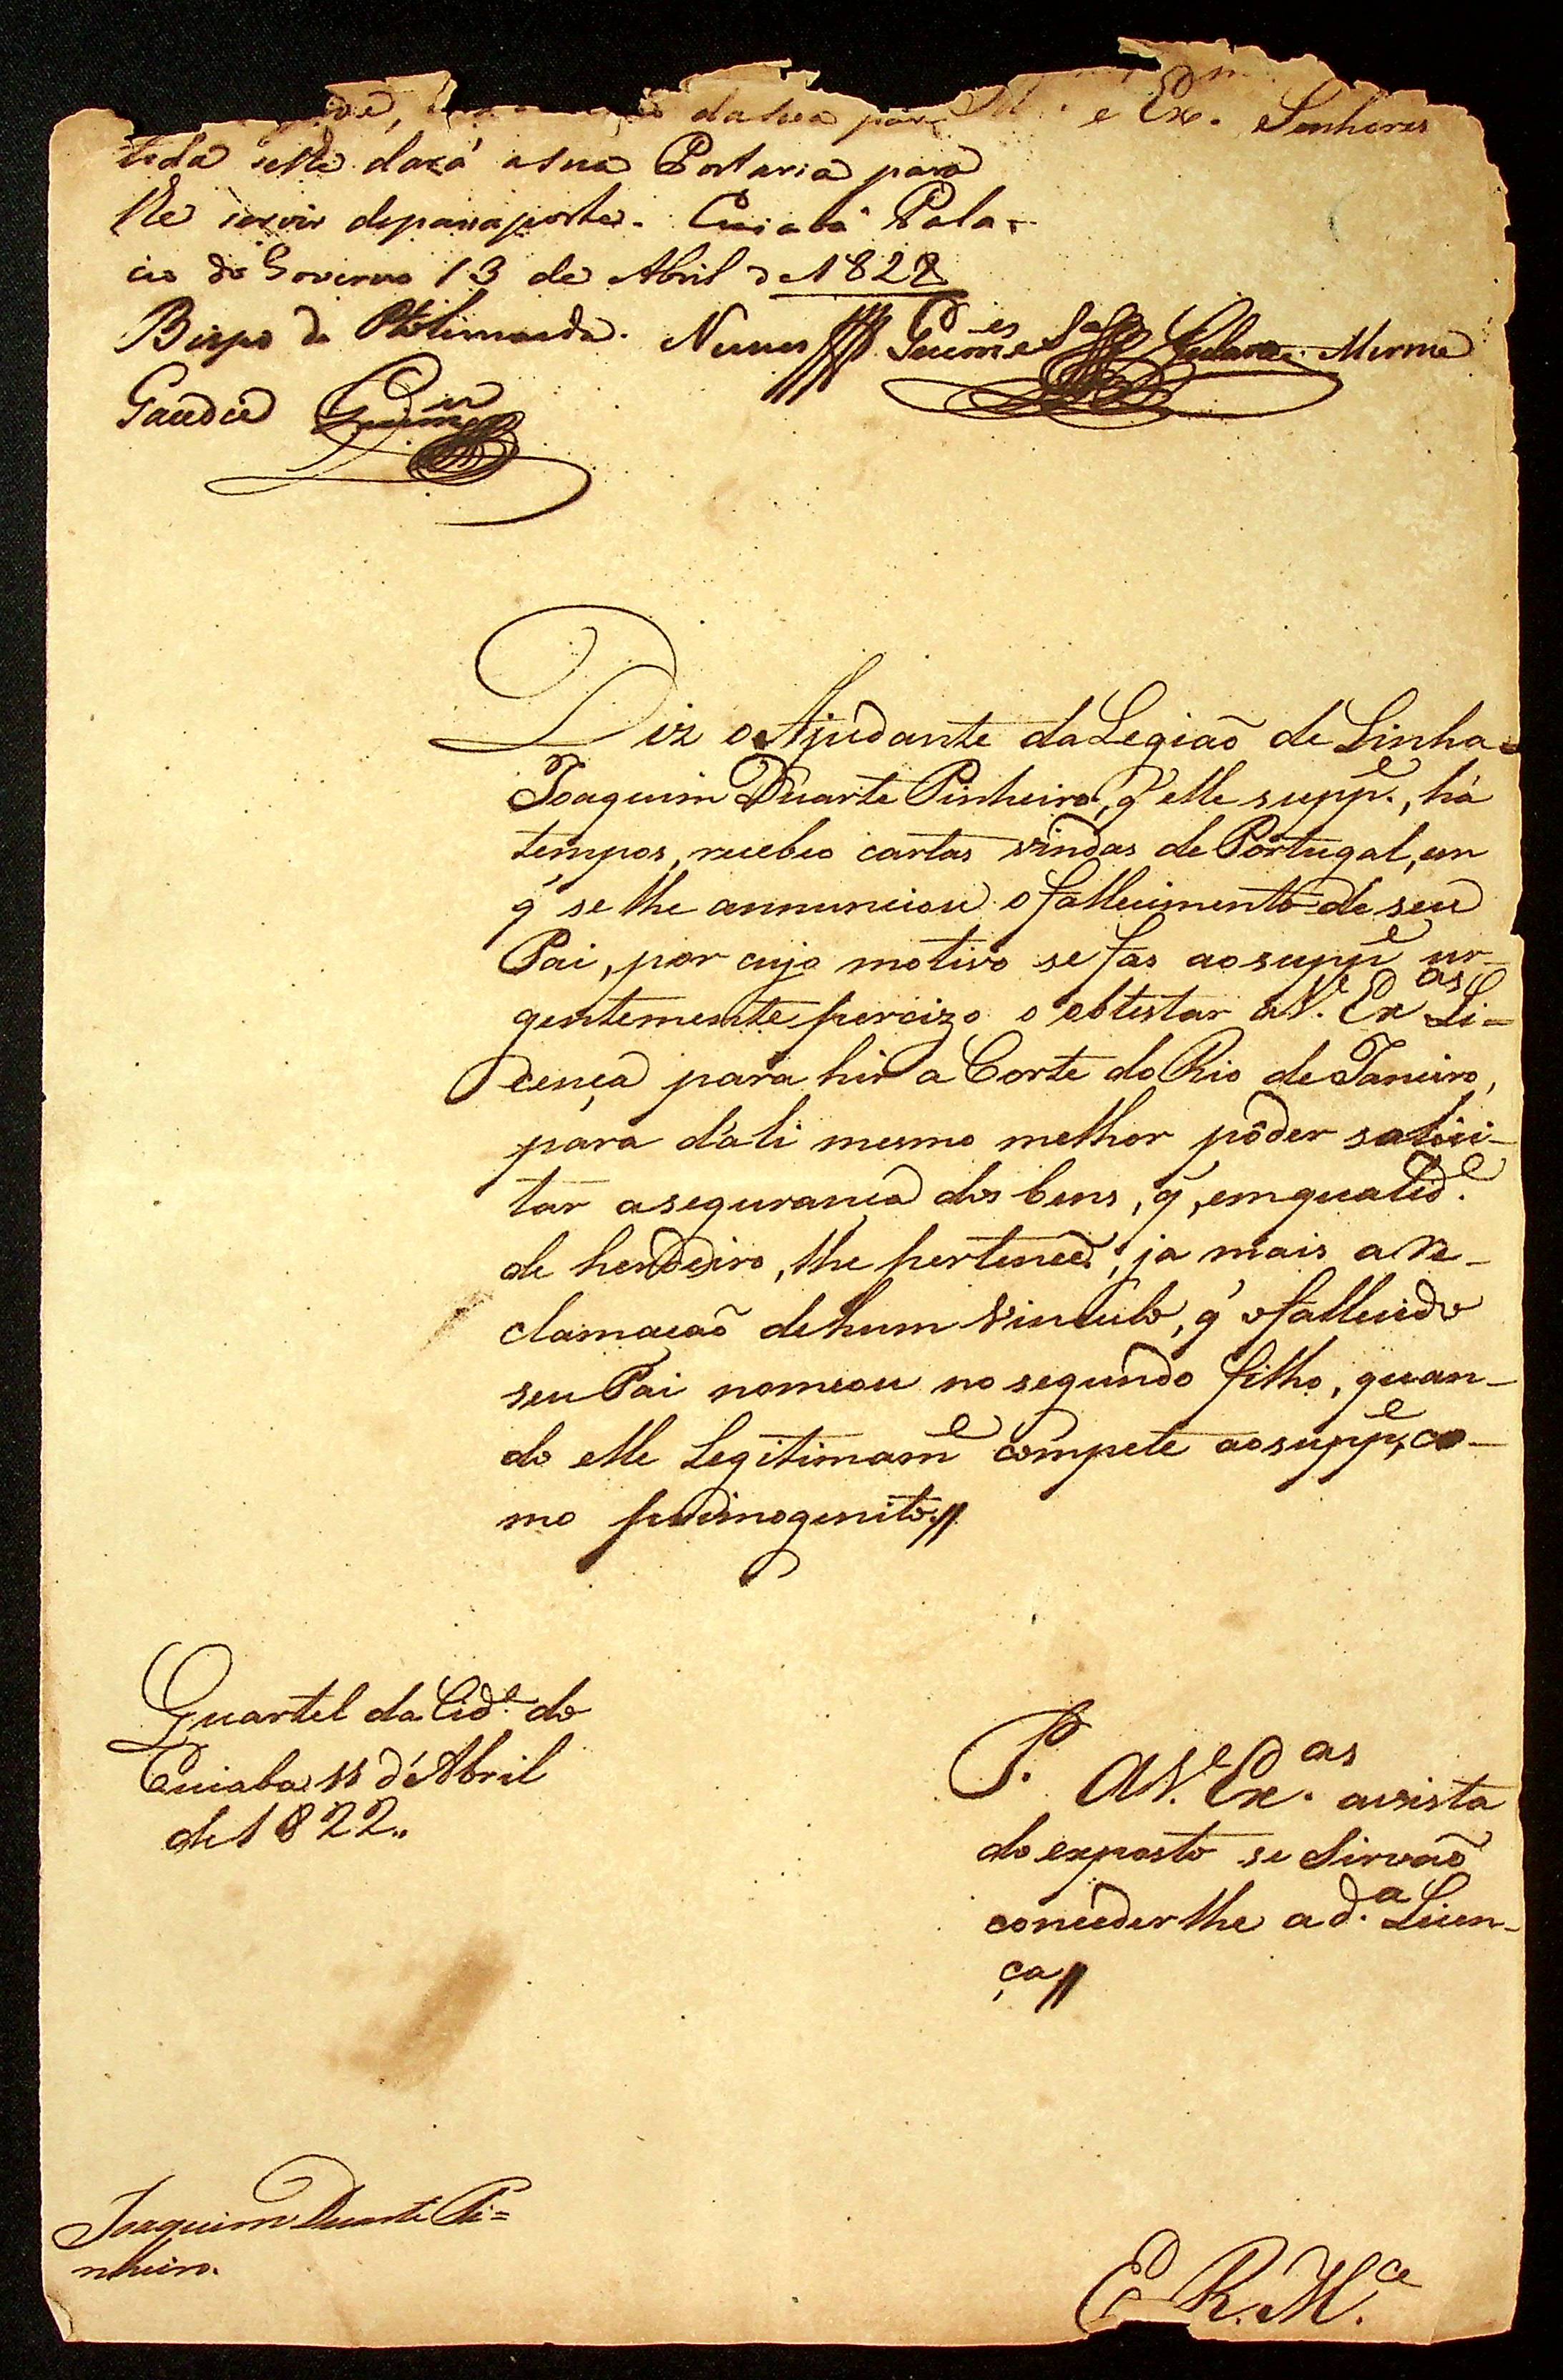 dahea para Ill. e Ex. Senhores
tida este dará a sua Portaria para
lhe servir depassaporte. Cuiabá Pala-
cio do Governo 13 de Abril de 1822
Bispo de Ptolimaida. Nunes Guim.es Gularte. Merme
Gaudie Guim.es
Diz o Ajudante da Legiaõ de Linha
Joaquim Duarte Pinheiro, q' elle supp.e, há
tempos, recebeo cartas vindas de Portugal, em
q' se lhe annunciou o fallecimento de seu
Pai, por cujo motivo se fas ao supp.e ur-
gentemente percizo o obtestar a V.Ex.as Li-
cença para hir a Corte do Rio de Janeiro,
para d'ali mesmo melhor pôder solici-
tar a segurança dos bens, q', em qualid.e
de herdeiro, lhe pertencẽ; ja mais a re-
clamaçaõ de hum Vinculo, q' o fallecido
seu Pai nomeou no segundo filho, quan-
do elle Legitimam.e compete ao supp.e, co-
mo primogenito//
Quartel da Cid.e do
Cuiaba 11 d'Abril
de 1822..
P. a V.Ex.as avista
do exposto se sirvaõ
concederlhe a d.a Licen-
ça//
Joaquim Duarte Pi=
nheiro.
E R. M.ce